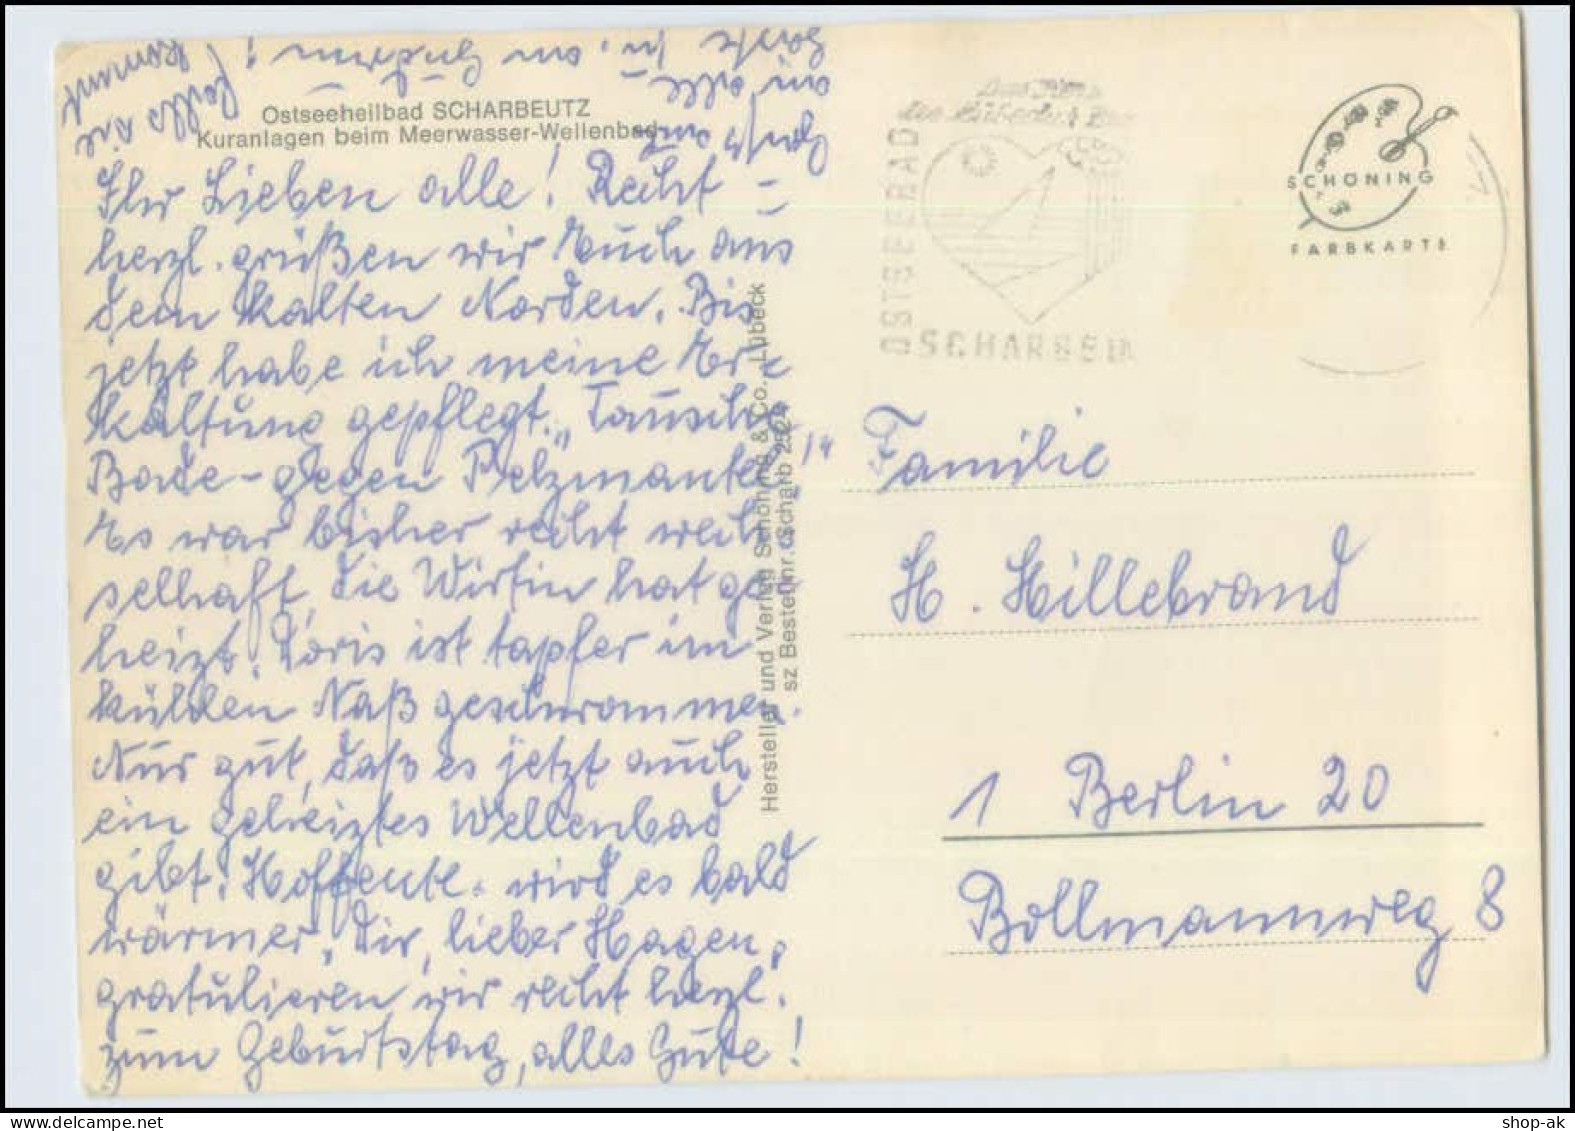 Ostseeheilbad SCHARBEUTZ
Kuranlagen beim Meerwasser-Wellenbad
Ihr Lieben alle! Recht
herzl. grüßen wir Euch aus
dem kalten Norden. Bis
jetzt habe ich meine Er-
kältung gepflegt. „Tausche
Bade- gegen Pelzmantel!"
Es war bisher recht wech-
selhaft, die Wirtin hat ge-
heizt. Doris ist tapfer im
kühlen Naß geschwommen.
Nur gut, daß es jetzt auch
ein geheiztes Wellenbad
gibt. Hoffentl. wird es bald
wärmer. Dir, lieber Hagen,
gratulieren wir recht herzl.
zum Geburtstag, alles Gute!
Hersteller und Verlag Schöning & Co., Lübeck
sz Bestellnr. Scharb 2524
OSTSEEBAD
SCHARBEU
SCHÖNING
FARBKARTE
Familie
H. Hillebrand
1 Berlin 20
Bollmannweg 8
shop-ak